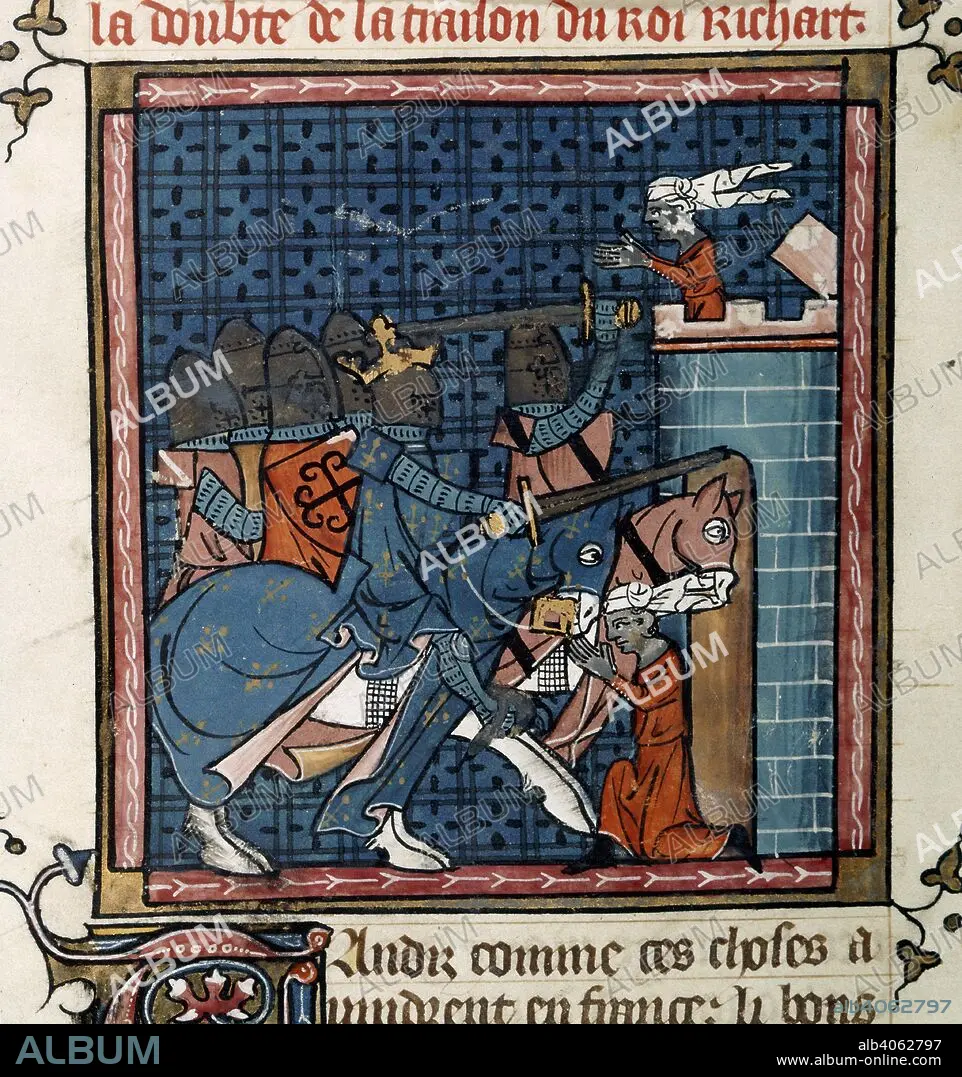 la doubte de la traison du Roi Richart.
Andiz comme ces choses a
uindrent en france: li bons
ALBUM
alb4062797
ALBUM
alb4062797
www.album-online.com